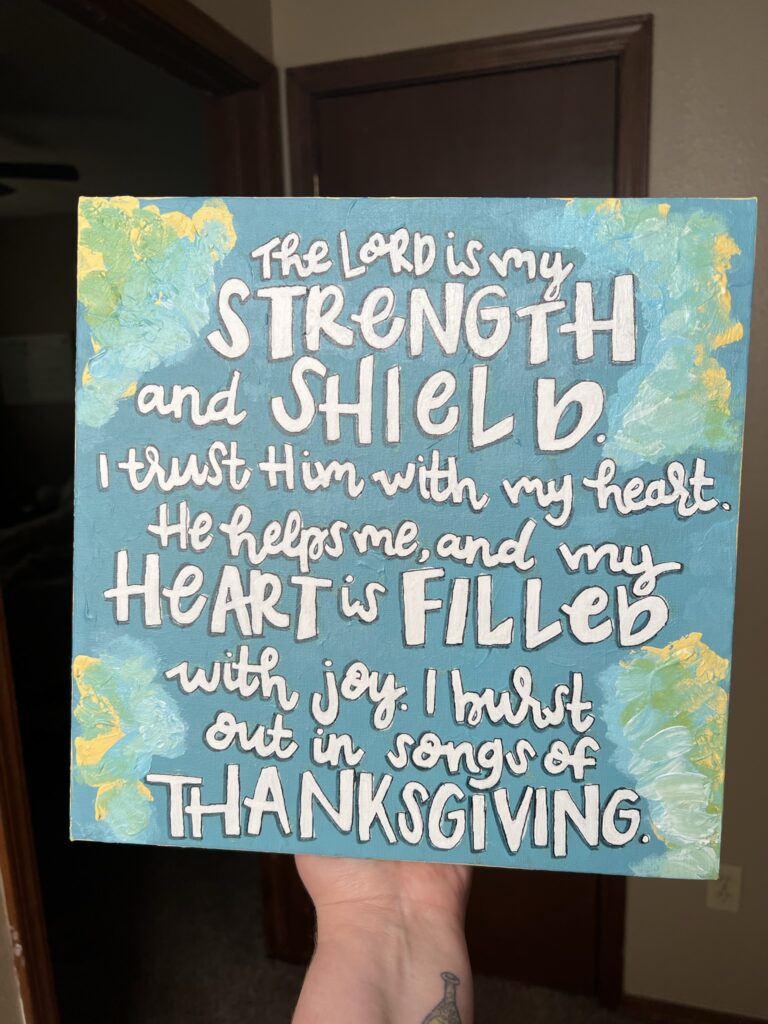 The LORD is my
STRENGTH
and SHIELD.
I trust Him with my heart.
He helps me, and my
HEART is FILLED
with joy. I burst
out in songs of
THANKSGIVING.